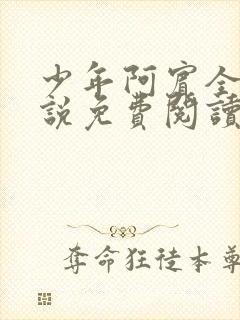 少年阿賓全
說免費閱讀
奪命狂徒本尊